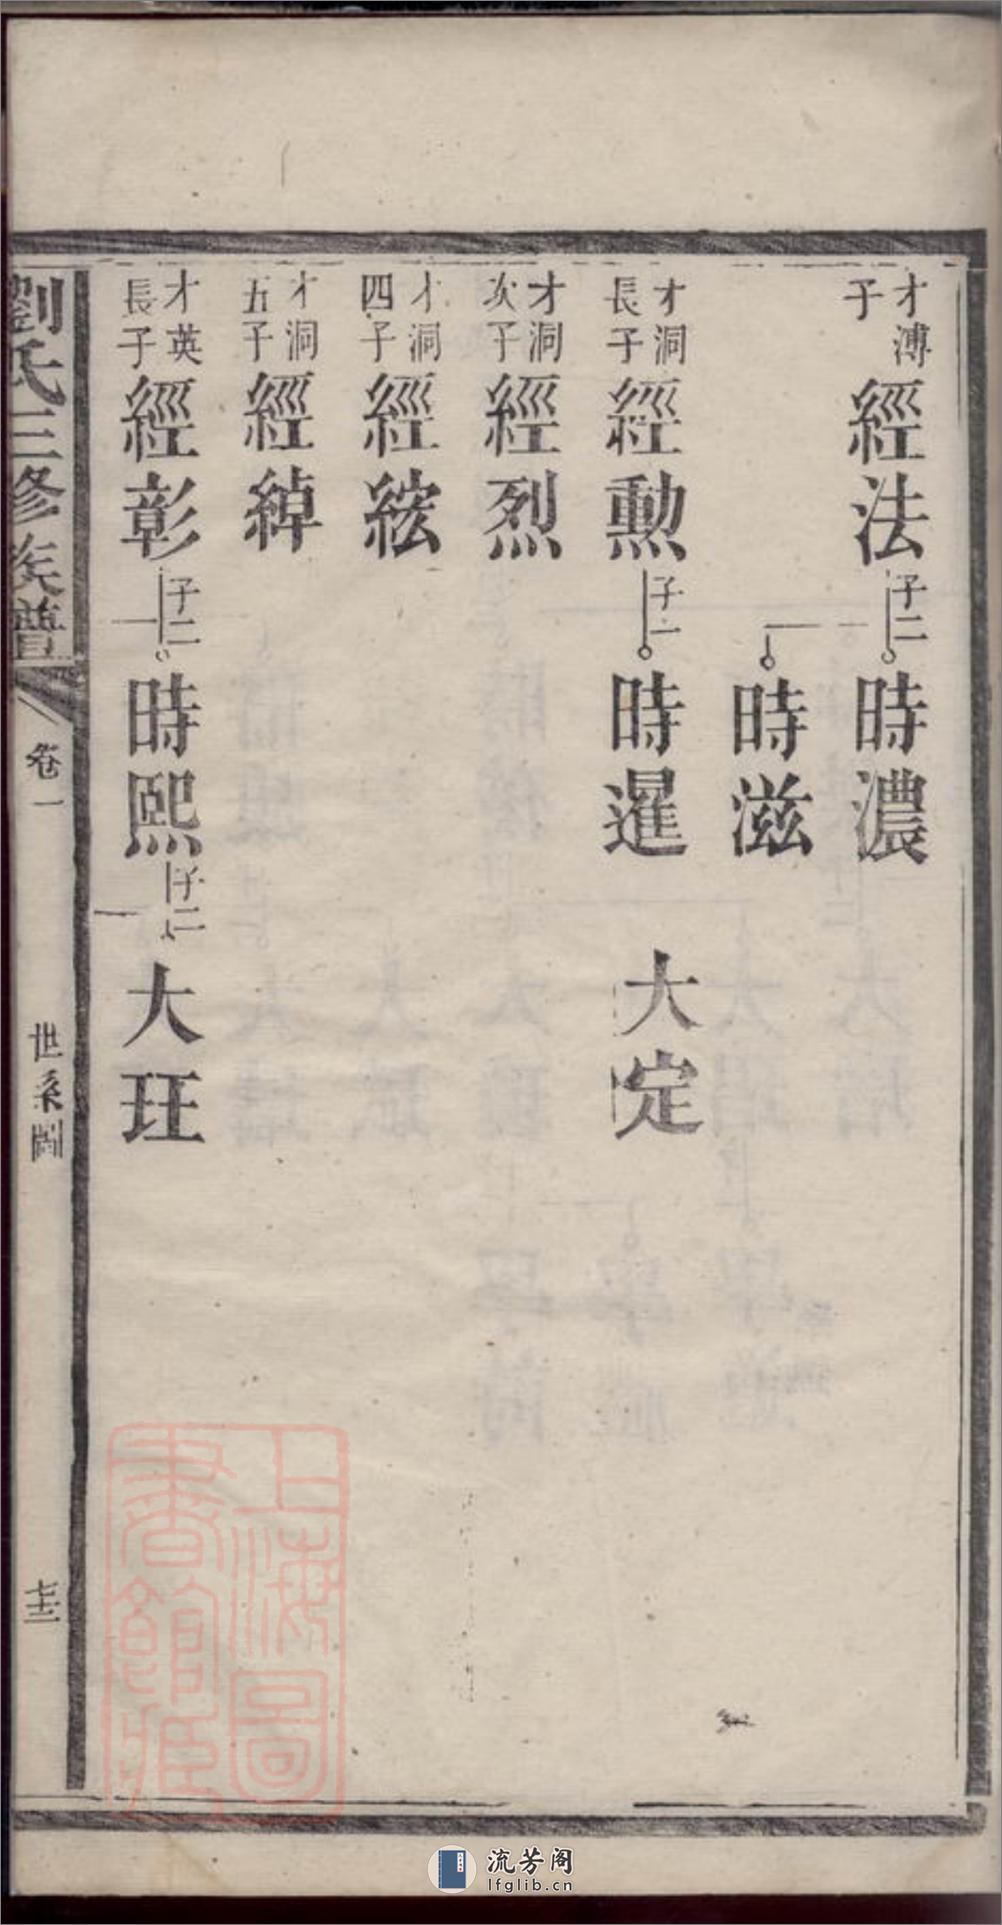 才溥
子
經法
子二
時濃
時滋
才洞
長子
經勲
子一
時暹
大定
才洞
次子
經烈
才洞
四子
經綋
才洞
五子
經綽
才英
長子
經彰
子二
時熙
子二
大玨
劉氏三修族譜
卷一
世系圖
上海圖
書館藏
流芳阁
lfglib.cn